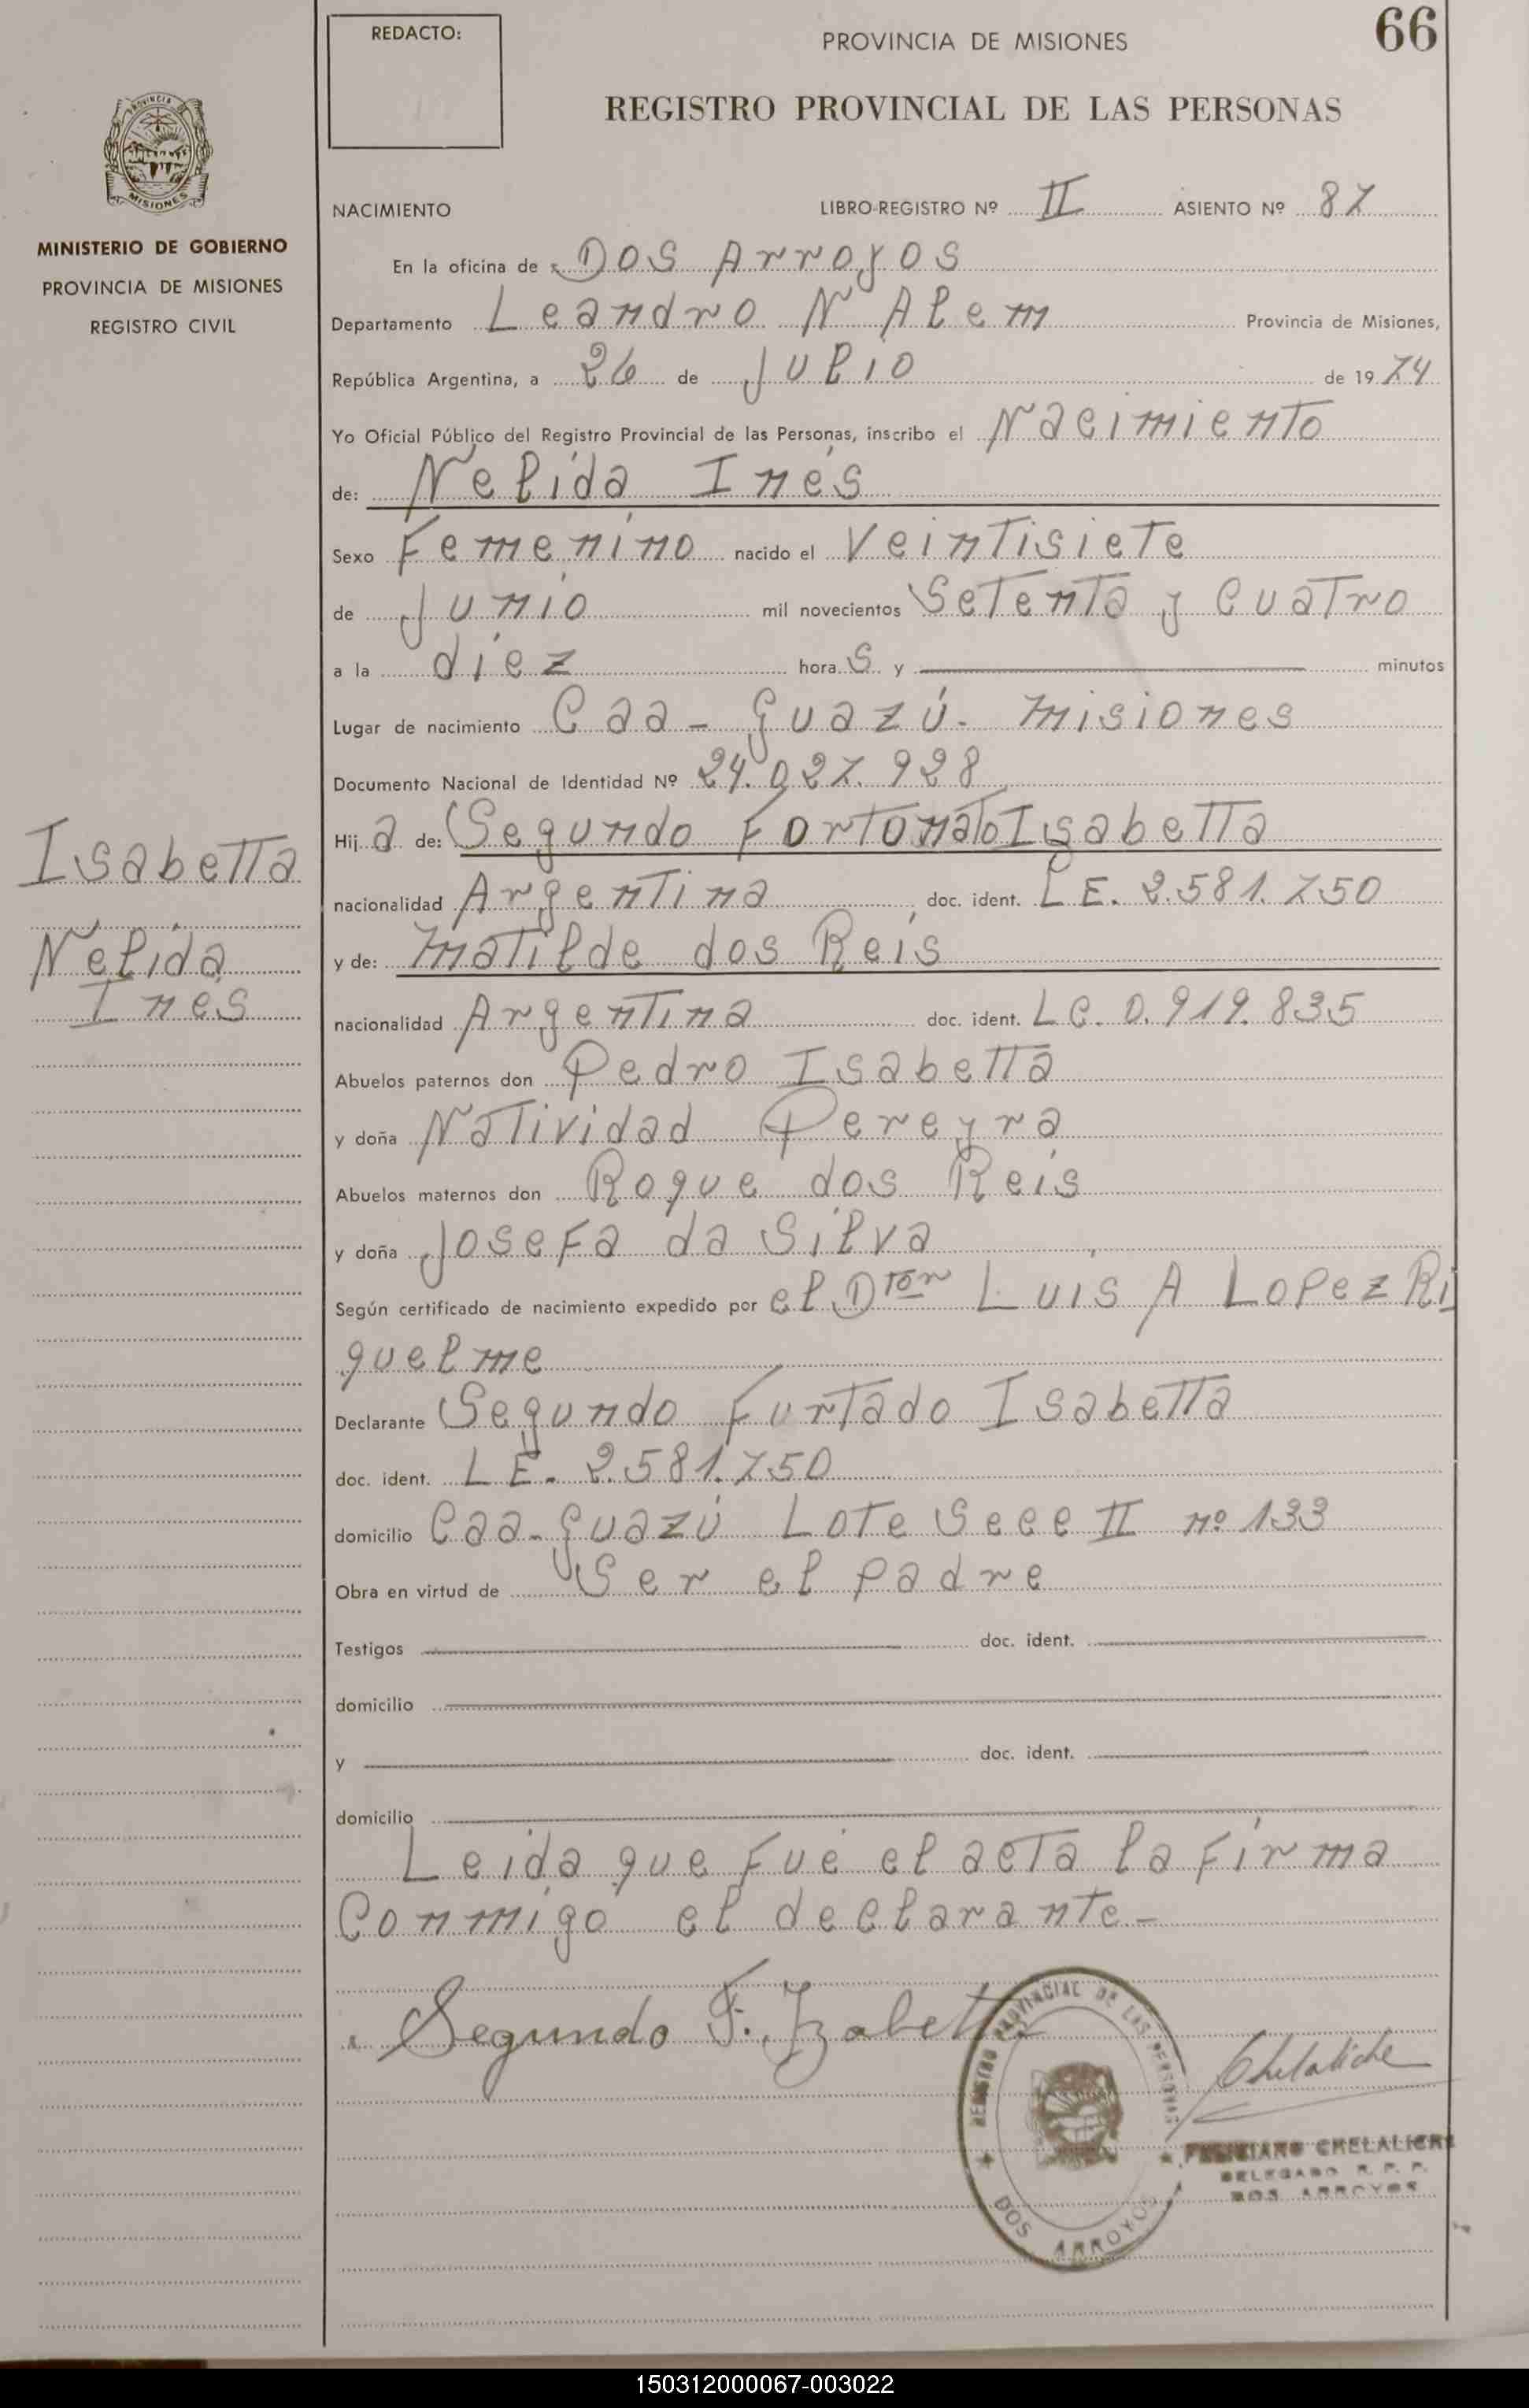 REDACTO:
PROVINCIA DE MISIONES
66
REGISTRO PROVINCIAL DE LAS PERSONAS
MISIONES
MINISTERIO DE GOBIERNO
PROVINCIA DE MISIONES
REGISTRO CIVIL
NACIMIENTO LIBRO-REGISTRO Nº II ASIENTO Nº 87
En la oficina de Dos Arroyos
Departamento Leandro N Alem Provincia de Misiones,
República Argentina, a 26 de Julio de 1974
Yo Oficial Público del Registro Provincial de las Personas, inscribo el Nacimiento
de: Nelida Inés
Sexo Femenino nacido el Veintisiete
de Junio mil novecientos Setenta y Cuatro
a la diez hora s y minutos
Lugar de nacimiento Caa-Guazú- Misiones
Documento Nacional de Identidad Nº 24.027.928
Hija de: Segundo Fortonato Isabetta
nacionalidad Argentina, doc. ident. L E. 2.581.750
y de: Matilde dos Reis
nacionalidad Argentina doc. ident. L C. 0.919.835
Isabetta
Nelida
Inés
Abuelos paternos don Pedro Isabetta
y doña Natividad Pereyra
Abuelos maternos don Roque dos Reis
y doña Josefa da Silva
Según certificado de nacimiento expedido por el Dtor Luis A Lopez Ri
quelme
Declarante Segundo Furtado Isabetta
doc. ident. L E. 2.581.750
domicilio Caa-Guazú Lote Secc II nº 133
Obra en virtud de Ser el padre
Testigos doc. ident.
domicilio
y doc. ident.
domicilio
Leida que fué el acta la firma
Conmigo el declarante-
Segundo F. Izabetta
Chelaliche
REGISTRO PROVINCIAL DE LAS PERSONAS
DOS ARROYOS
FELICIANO CHELALICHE
DELEGADO R. P. P.
DOS ARROYOS
150312000067-003022